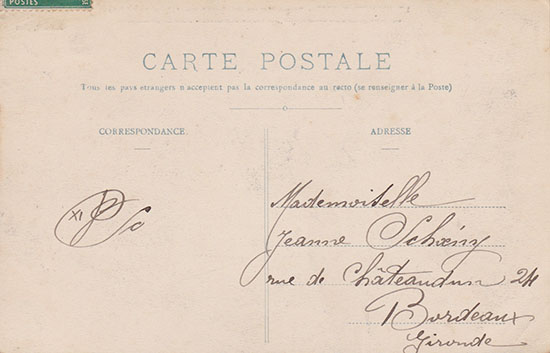 POSTES
CARTE POSTALE
Tous les pays étrangers n'acceptent pas la correspondance au recto (se renseigner à la Poste)
CORRESPONDANCE
ADRESSE
XI
Mademoiselle
Jeanne Schœny
rue de Châteaudun 24
Bordeaux
Gironde